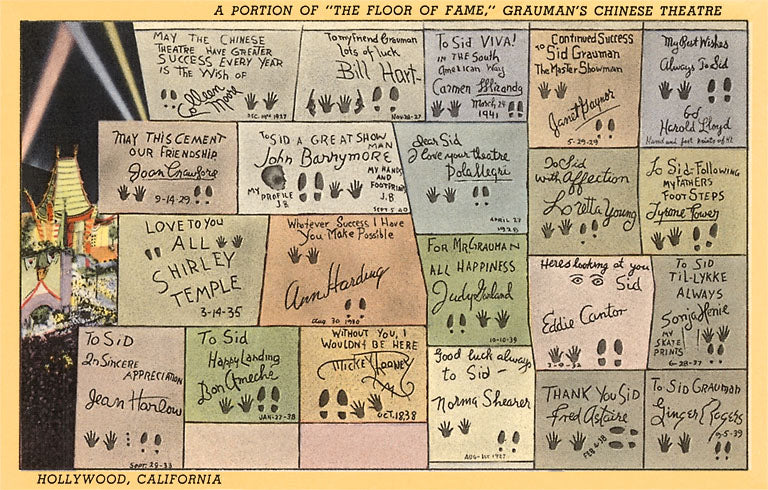 A PORTION OF "THE FLOOR OF FAME," GRAUMAN'S CHINESE THEATRE
MAY THE CHINESE
THEATRE HAVE GREATER
SUCCESS EVERY YEAR
IS THE WISH OF
Colleen Moore
DEC. 19TH 1927
To my Friend Grauman
Lots of luck
Bill Hart-
Nov 28-27
To Sid VIVA!
IN THE South
American Way
Carmen Miranda
March 24
1941
Continued Success
TO Sid Grauman
The Master Showman
Janet Gaynor
5-29-29
My Best Wishes
Always To Sid
Harold Lloyd
Hand and foot prints of HL
MAY THIS CEMENT
OUR FRIENDSHIP
Joan Crawford
9-14-29
To SID A GREAT SHOW
MAN
John Barrymore
MY HANDS
AND
FOOTPRINTS
J.B
MY
PROFILE
J B
SEPT 5 40
Dear Sid
I love your theatre
Pola Negri
APRIL 27
1928
To Sid
with Affection
Loretta Young
To Sid-Following
MY FATHERS
FOOT STEPS
Tyrone Power
LOVE TO YOU
ALL
SHIRLEY
TEMPLE
3-14-35
Whatever Success I Have
You Make Possible
Ann Harding
Aug 30 1930
FOR MR GRAUMAN
ALL HAPPINESS
Judy Garland
10-10-39
Heres looking at you
Sid
Eddie Cantor
3-9-32
To SID
TIL-LYKKE
ALWAYS
Sonja Henie
MY
SKATE
PRINTS
6-28-37
To SID
In Sincere
APPRECIATION
Jean Harlow
Sept: 29-33
To Sid
Happy Landing
Don Ameche
JAN-27-38
WITHOUT YOU, I
WOULDN'T BE HERE
MICKEY ROONEY
OCT. 18, 38
Good luck always
to Sid -
Norma Shearer
AUG-1st 1927
THANK YOU SID
Fred Astaire
FEB 4-38
To SID GRAUMAN
Ginger Rogers
9-5-39
HOLLYWOOD, CALIFORNIA